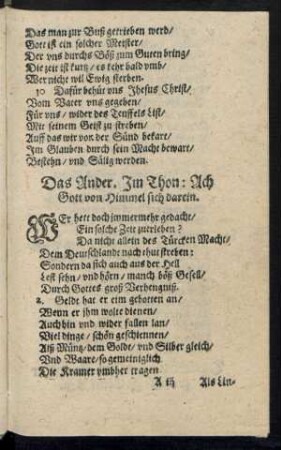 Das man zur Buß getrieben werd/
Gott ist ein solcher Meister/
Der vns durchs Böß zum Guten bring/
Die zeit ist kurtz/ es kehr bald vmb/
Wer nicht wil Ewig sterben.
10 Dafür behüt vns Jhesus Christ/
Vom Vater vns gegeben/
Für vns/ wider des Teuffels List/
Mit seinem Geist zu streben/
Auff das wir von der Sünd bekart/
Im Glauben durch sein Macht bewart/
Bestehn/ vnd Sälig werden.
Das Ander. Im Thon: Ach
Gott von Himmel sich darein.
WEr hett doch jmmermehr gedacht/
Ein solche Zeit zuerleben?
Da nicht allein des Türcken Macht/
Dem Deutschlandt nach thut streben:
Sondern da sich auch aus der Hell
Lest sehn/ vnd hörn/ manch böß Gesell/
Durch Gottes groß Verhengniß.
2. Geldt hat er eim gebotten an/
Wenn er jhm wolte dienen/
Auch hin vnd wider fallen lan/
Viel dinge/ schön geschiennen/
Alß Müntz/ dem Goldt/ vnd Silber gleich/
Vnd Waare/ so gemeiniglich
Die Kramer vmbher tragen.
A iij Als Lin-